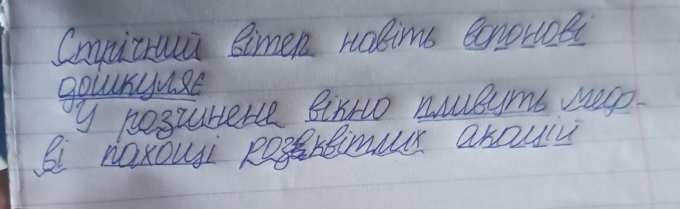 Стрічний вітер навіть воронові
дошкуляє
У розчинене вікно пливуть мер-
ві пахощі розквітлих акацій